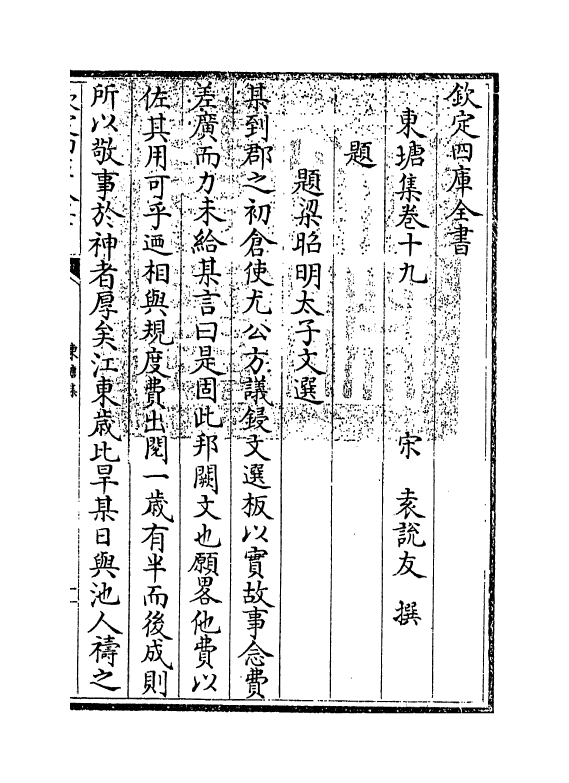 欽定四庫全書
東塘集卷十九
宋 袁說友 撰
題
題梁昭明太子文選
某到郡之初倉使尤公方議鋟文選板以實故事念費
差廣而力未給某言曰是固此邦闕文也願畧他費以
佐其用可乎迺相與規度費出閱一歲有半而後成則
所以敬事於神者厚矣江東歳比旱某日與池人禱之
東塘集